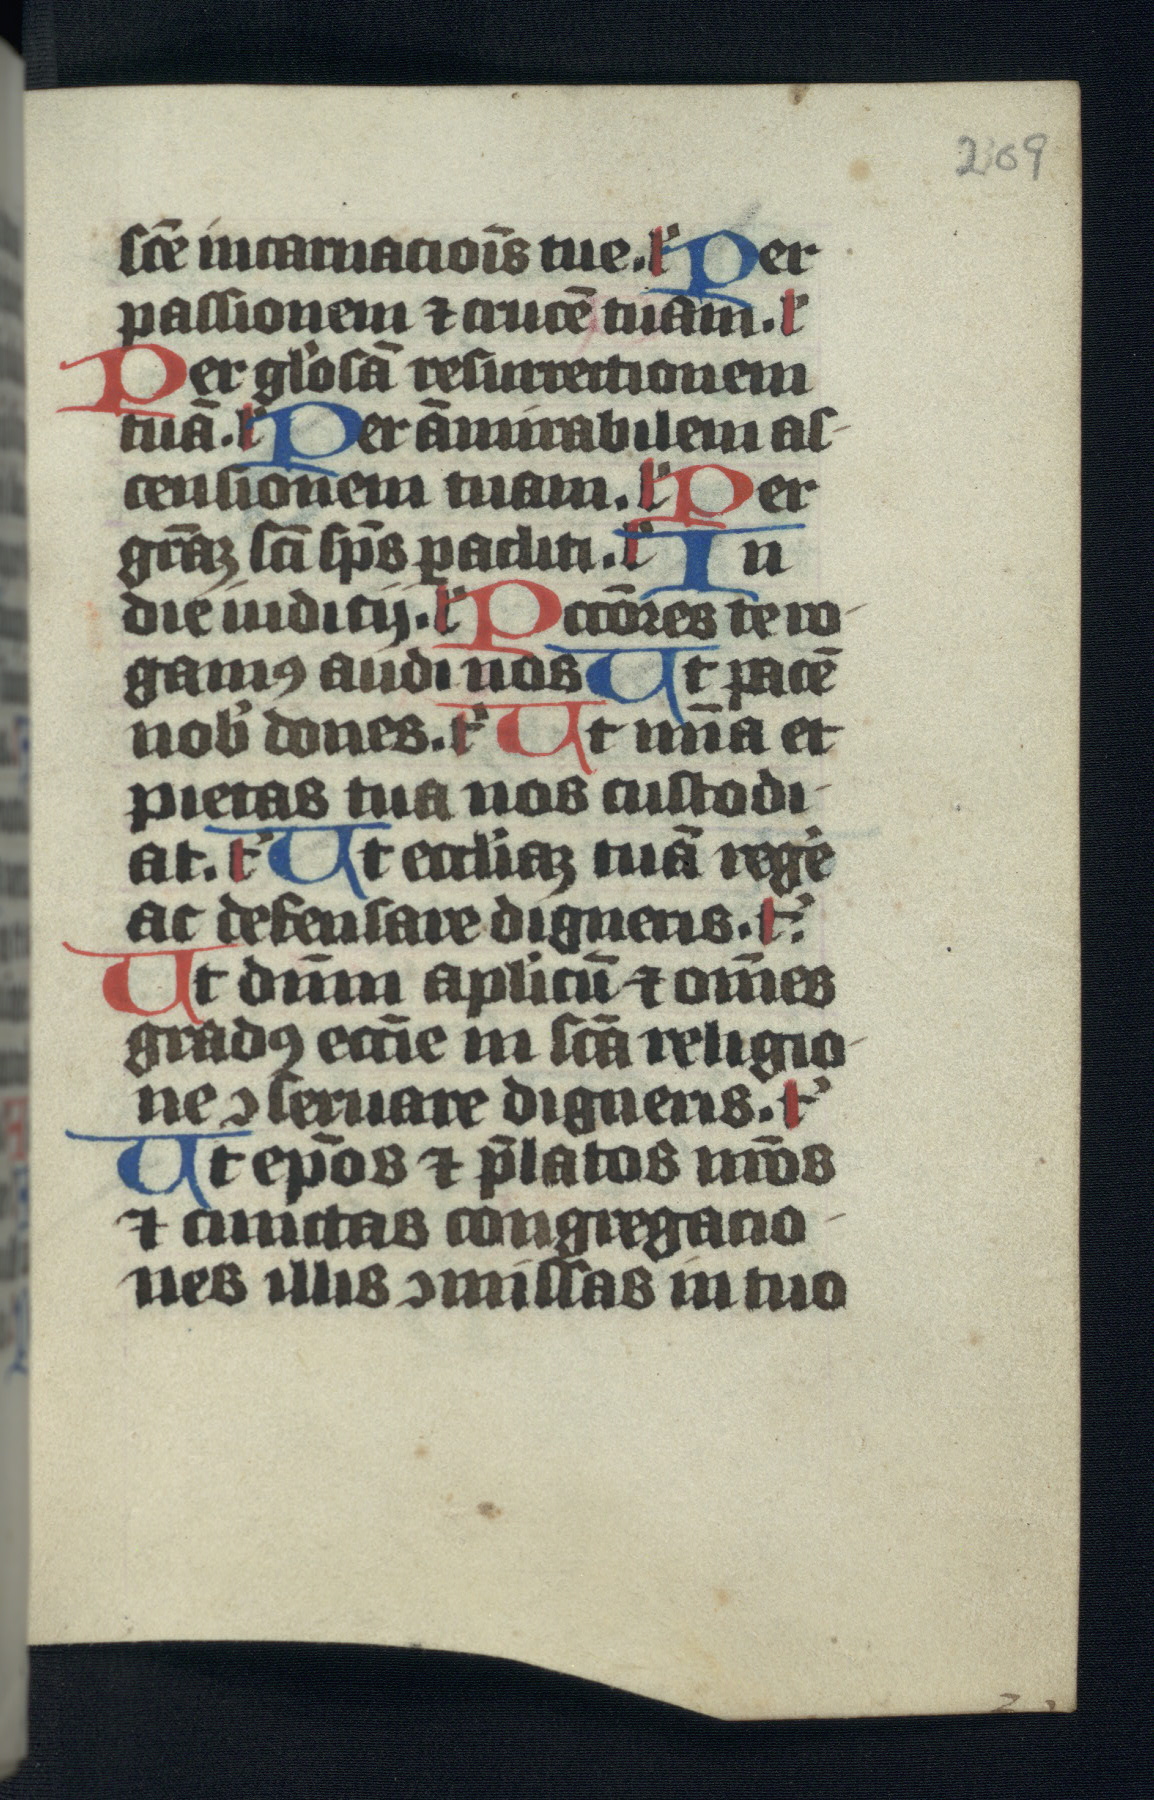 209
sc̄e incarnacioīs tue. l' Per
passionem ⁊ crucē tuam. l'
Per gl'osā resurrectionem
tuā. l' Per āmirabilem as-
censionem tuam. l' Per
gr̄aꝫ sc̄i sp̄s ꝑacliti. l' In
die iudicij. l' Pccōres te ro-
gamꝯ audi nos Ut pacē
nob' dones. t' Ut mīa et
pietas tua nos custodi-
at. t' Ut eccl'iaꝫ tuā reg'e
ac defensare digneris. t'
Ut dn̄m aplicū ⁊ om̄es
gradꝯ ecc̄ie in sc̄a religio-
ne ꝯseruare digneris. t'
Ut ep̄os ⁊ p̄latos nr̄os
⁊ cunctas congregacio-
nes illis ꝯmissas in tuo